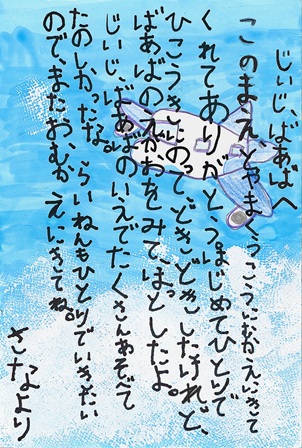 じぃじ、ばあばへ
このまえ、とやまくうこうにむかえにきて
くれてありがとう。はじめてひとりで
ひこうきにのってどきどきしたけれど、
ばあばのえがおをみてほっとしたよ。
じぃじ、ばあばのいえでたくさんあそべて
たのしかったな。らいねんもひとりでいきたい
ので、またおむかえにきてね。
さなより